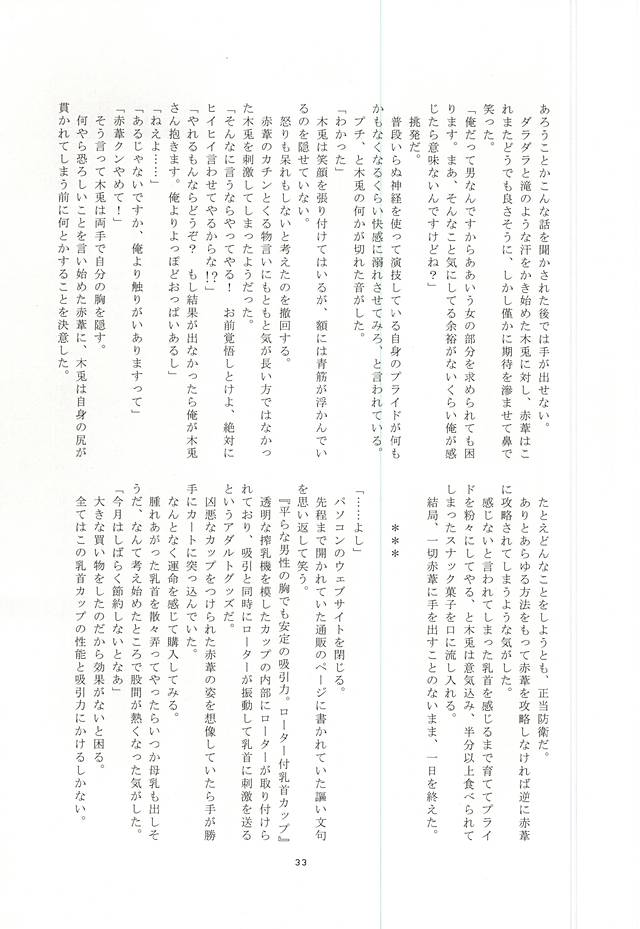 あろうことかこんな話を聞かされた後では手が出せない。
ダラダラと滝のような汗をかき始めた木兎に対し、赤葦はこ
れまたどうでも良さそうに、しかし僅かに期待を滲ませて鼻で
笑った。
「俺だって男なんですからああいう女の部分を求められても困
ります。まあ、そんなこと気にしてる余裕がないくらい俺が感
じたら意味ないんですけどね？」
挑発だ。
普段いらぬ神経を使って演技している自身のプライドが何も
かもなくなるくらい快感に溺れさせてみろ、と言われている。
プチ、と木兎の何かが切れた音がした。
「わかった」
木兎は笑顔を張り付けてはいるが、額には青筋が浮かんでい
るのを隠せていない。
怒りも呆れもしないと考えたのを撤回する。
赤葦のカチンとくる物言いにもともと気が長い方ではなかっ
た木兎を刺激してしまったようだった。
「そんなに言うならやってやる！　お前覚悟しとけよ、絶対に
ヒイヒイ言わせてやるからな!?」
「やれるもんならどうぞ？　もし結果が出なかったら俺が木兎
さん抱きます。俺よりよっぽどおっぱいあるし」
「ねえよ……」
「あるじゃないですか、俺より触りがいありますって」
「赤葦クンやめて！」
そう言って木兎は両手で自分の胸を隠す。
何やら恐ろしいことを言い始めた赤葦に、木兎は自身の尻が
貫かれてしまう前に何とかすることを決意した。
たとえどんなことをしようとも、正当防衛だ。
ありとあらゆる方法をもって赤葦を攻略しなければ逆に赤葦
に攻略されてしまうような気がした。
感じないと言われてしまった乳首を感じるまで育ててプライ
ドを粉々にしてやる、と木兎は意気込み、半分以上食べられて
しまったスナック菓子を口に流し入れる。
結局、一切赤葦に手を出すことのないまま、一日を終えた。
＊＊＊
「……よし」
パソコンのウェブサイトを閉じる。
先程まで開かれていた通販のページに書かれていた謳い文句
を思い返して笑う。
『平らな男性の胸でも安定の吸引力。ローター付乳首カップ』
透明な搾乳機を模したカップの内部にローターが取り付けら
れており、吸引と同時にローターが振動して乳首に刺激を送る
というアダルトグッズだ。
凶悪なカップをつけられた赤葦の姿を想像していたら手が勝
手にカートに突っ込んでいた。
なんとなく運命を感じて購入してみる。
腫れあがった乳首を散々弄ってやったらいつか母乳も出しそ
うだ、なんて考え始めたところで股間が熱くなった気がした。
「今月はしばらく節約しないとなあ」
大きな買い物をしたのだから効果がないと困る。
全てはこの乳首カップの性能と吸引力にかけるしかない。
33